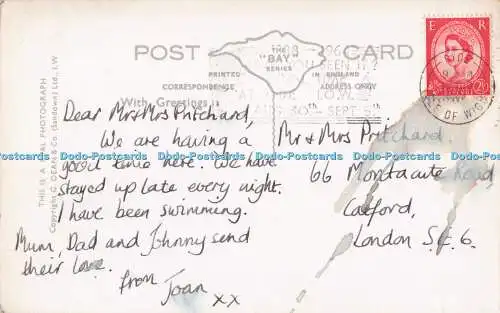 POST CARD
THE "BAY" SERIES
PRINTED IN ENGLAND
CORRESPONDENCE
ADDRESS ONLY
With Greetings
AUG 30th - SEPT 5th
E R
2½D
OF WIGHT
THIS IS A REAL PHOTOGRAPH
Copyright C. DEAN & Co. (Sandown) Ltd., I.W.
Dear Mr & Mrs Pritchard,
We are having a
good time here. We have
stayed up late every night.
I have been swimming.
Mum, Dad and Johnny send
their love.
from
Joan
xx
Mr & Mrs Pritchard
66 Montacute Road
Catford,
London S.E.6.
Dodo-Postcards Dodo-Postcards Dodo-Postcards Dodo-Postcards Dodo-Postcards